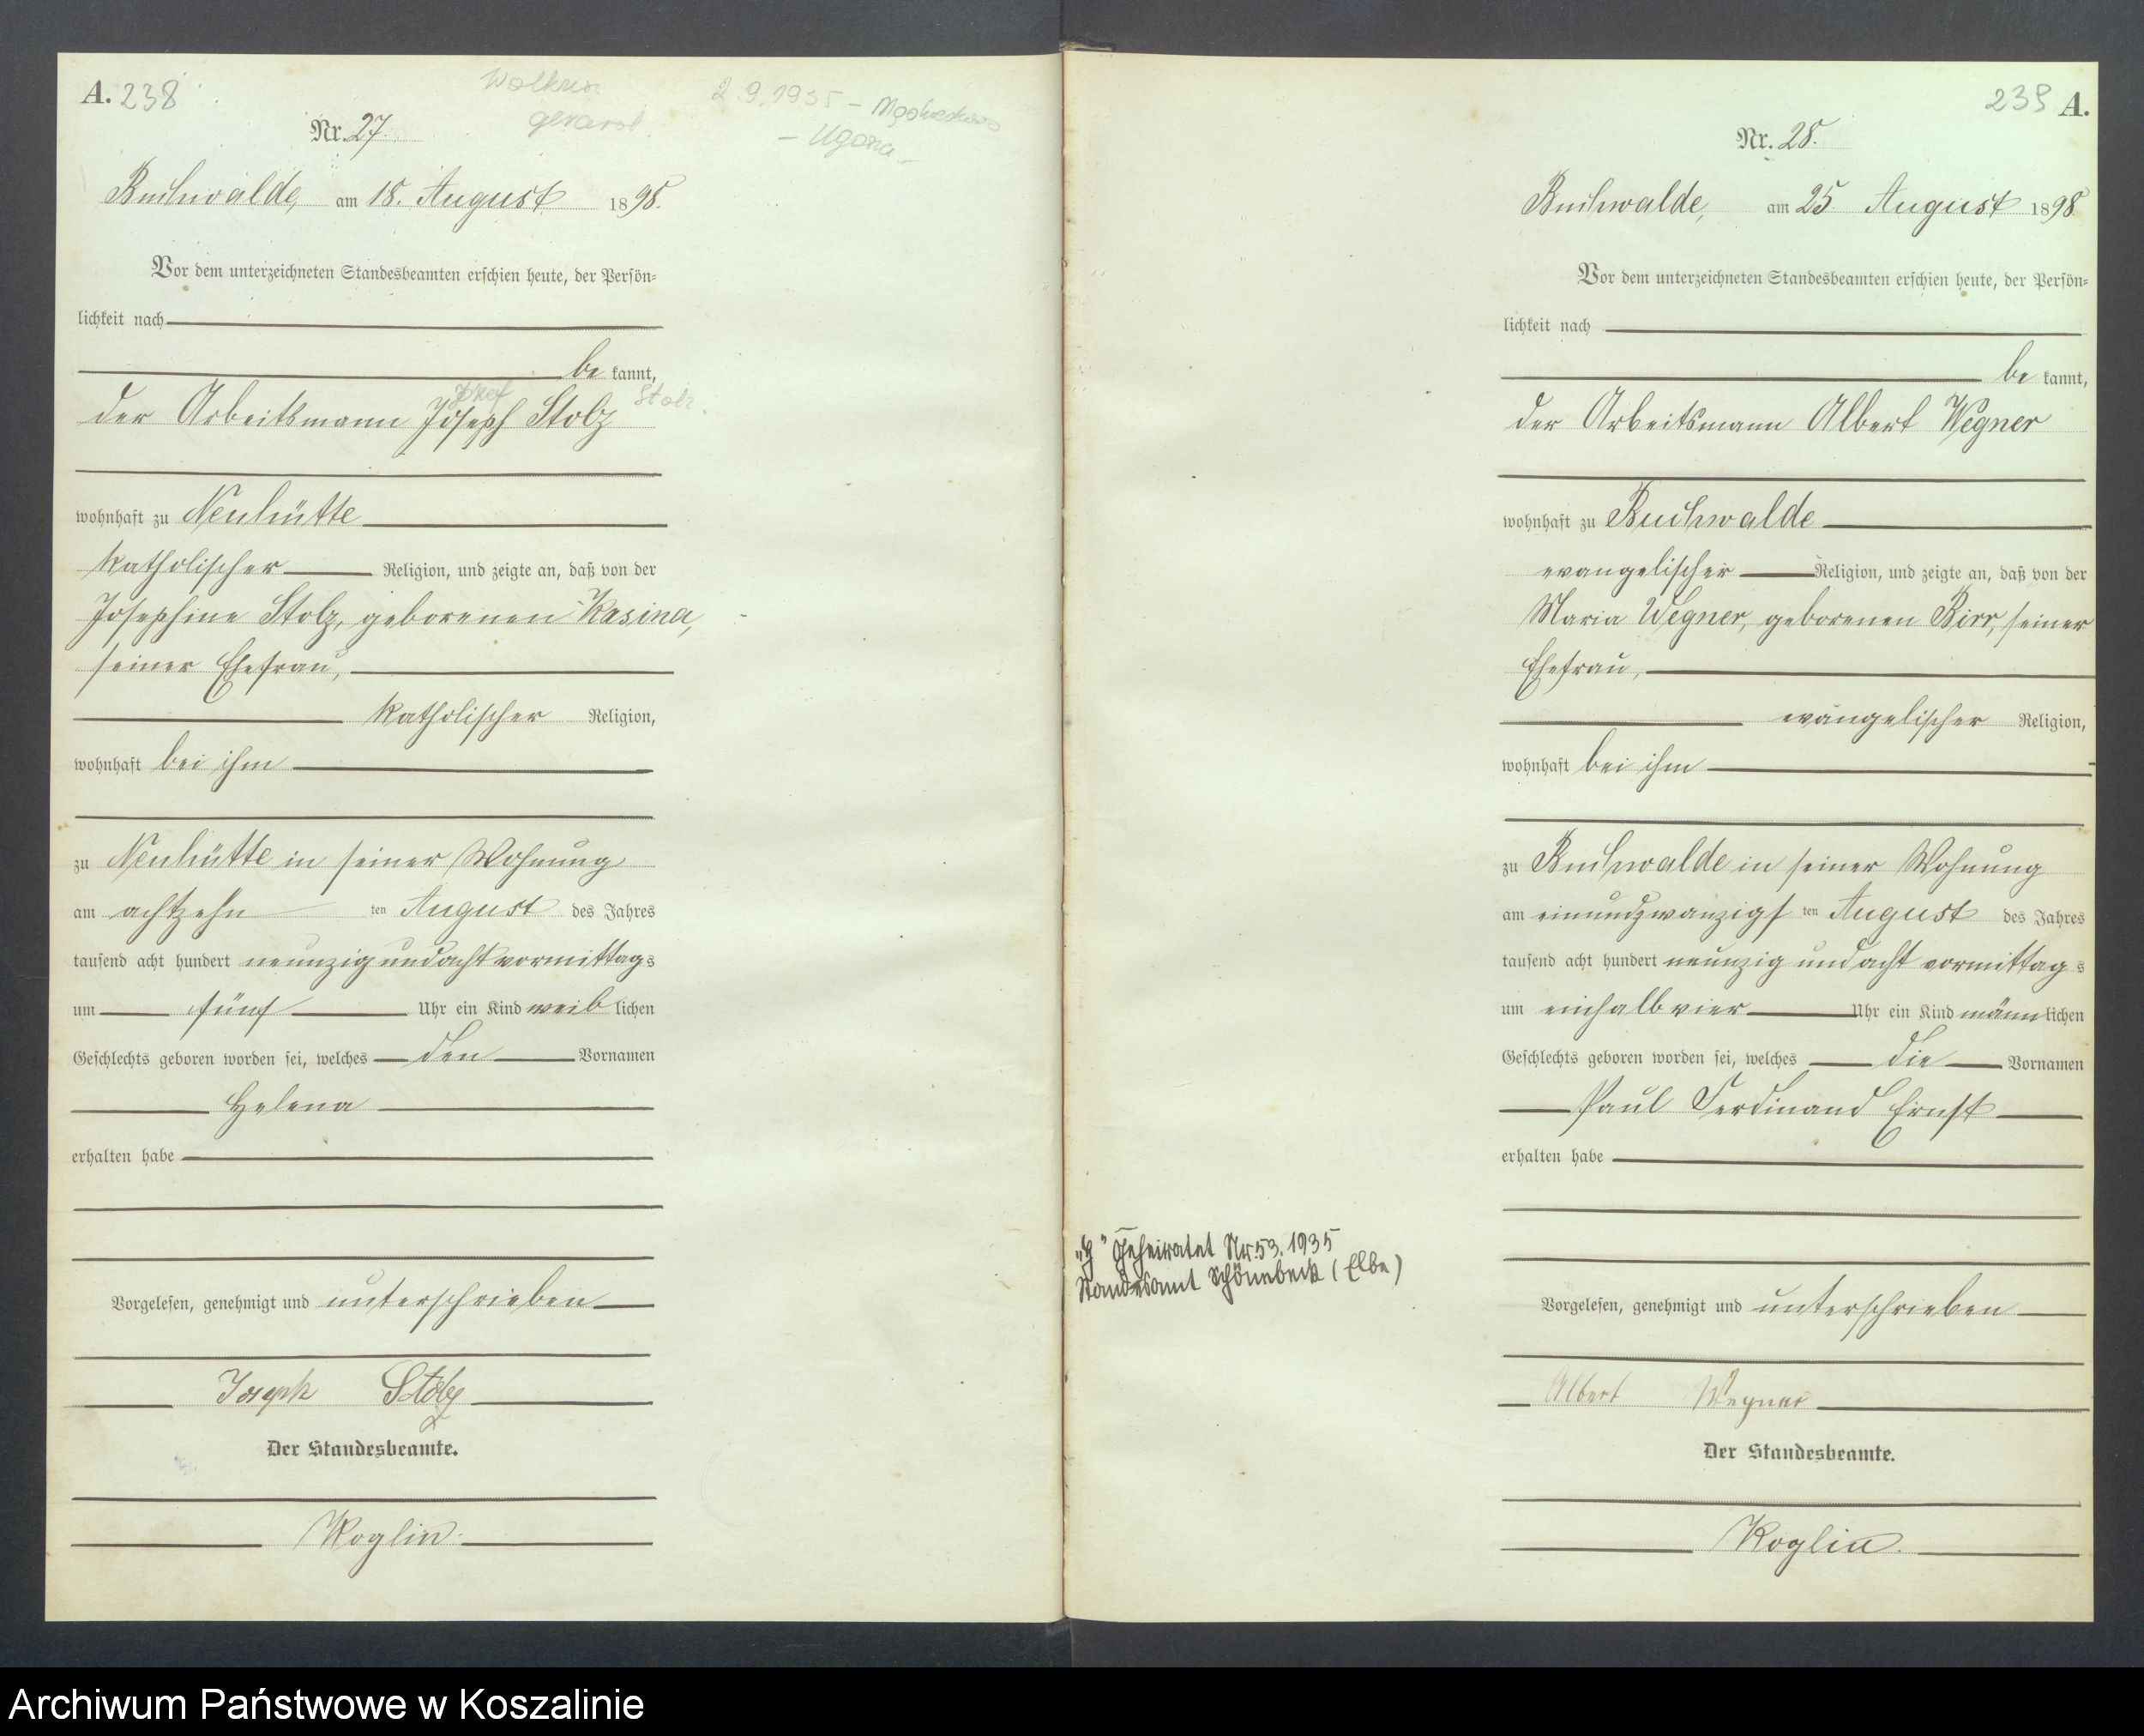 A. 238
Nr. 27.
Buchwalde, am 18. August 1898.
Vor dem unterzeichneten Standesbeamten erschien heute, der Persön-
lichkeit nach
be kannt,
Józef Stolz
der Arbeitsmann Joseph Stolz
wohnhaft zu Neuhütte
katholischer Religion, und zeigte an, daß von der
Josephine Stolz, geborenen Kasina,
seiner Ehefrau,
katholischer Religion,
wohnhaft bei ihm
zu Neuhütte in seiner Wohnung
am achtzehn ten August des Jahres
tausend acht hundert neunzig und acht vormittags
um fünf Uhr ein Kind weiblichen
Geschlechts geboren worden sei, welches den Vornamen
Helena
erhalten habe
Vorgelesen, genehmigt und unterschrieben
Joseph Stolz
Der Standesbeamte.
Koglin.
2.9.1935 -
239 A.
Nr. 28.
Buchwalde, am 25. August 1898
Vor dem unterzeichneten Standesbeamten erschien heute, der Persön-
lichkeit nach
be kannt,
der Arbeitsmann Albert Wegner
wohnhaft zu Buchwalde
evangelischer Religion, und zeigte an, daß von der
Maria Wegner, geborenen Birr, seiner
Ehefrau,
evangelischer Religion,
wohnhaft bei ihm
zu Buchwalde in seiner Wohnung
am einundzwanzigsten August des Jahres
tausend acht hundert neunzig und acht vormittags
um einhalb vier Uhr ein Kind männlichen
Geschlechts geboren worden sei, welches die Vornamen
Paul Ferdinand Ernst
erhalten habe
Geheiratet Nr. 53. 1935
Standesamt Schönebeck (Elbe)
Vorgelesen, genehmigt und unterschrieben
Albert Wegner
Der Standesbeamte.
Koglin.
Archiwum Państwowe w Koszalinie